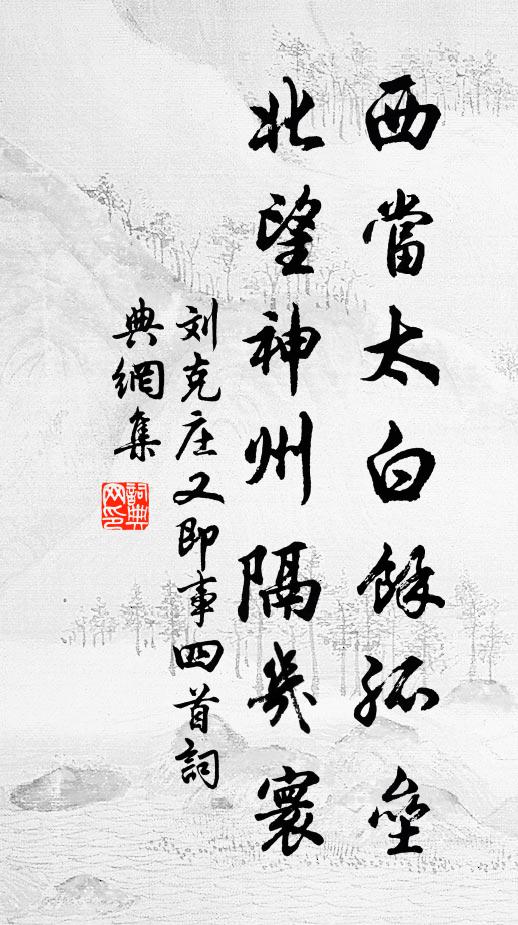 西當太白餘孤壘
北望神州隔幾寰
刘克庄又即事四首詞
典網集
詞典
网印